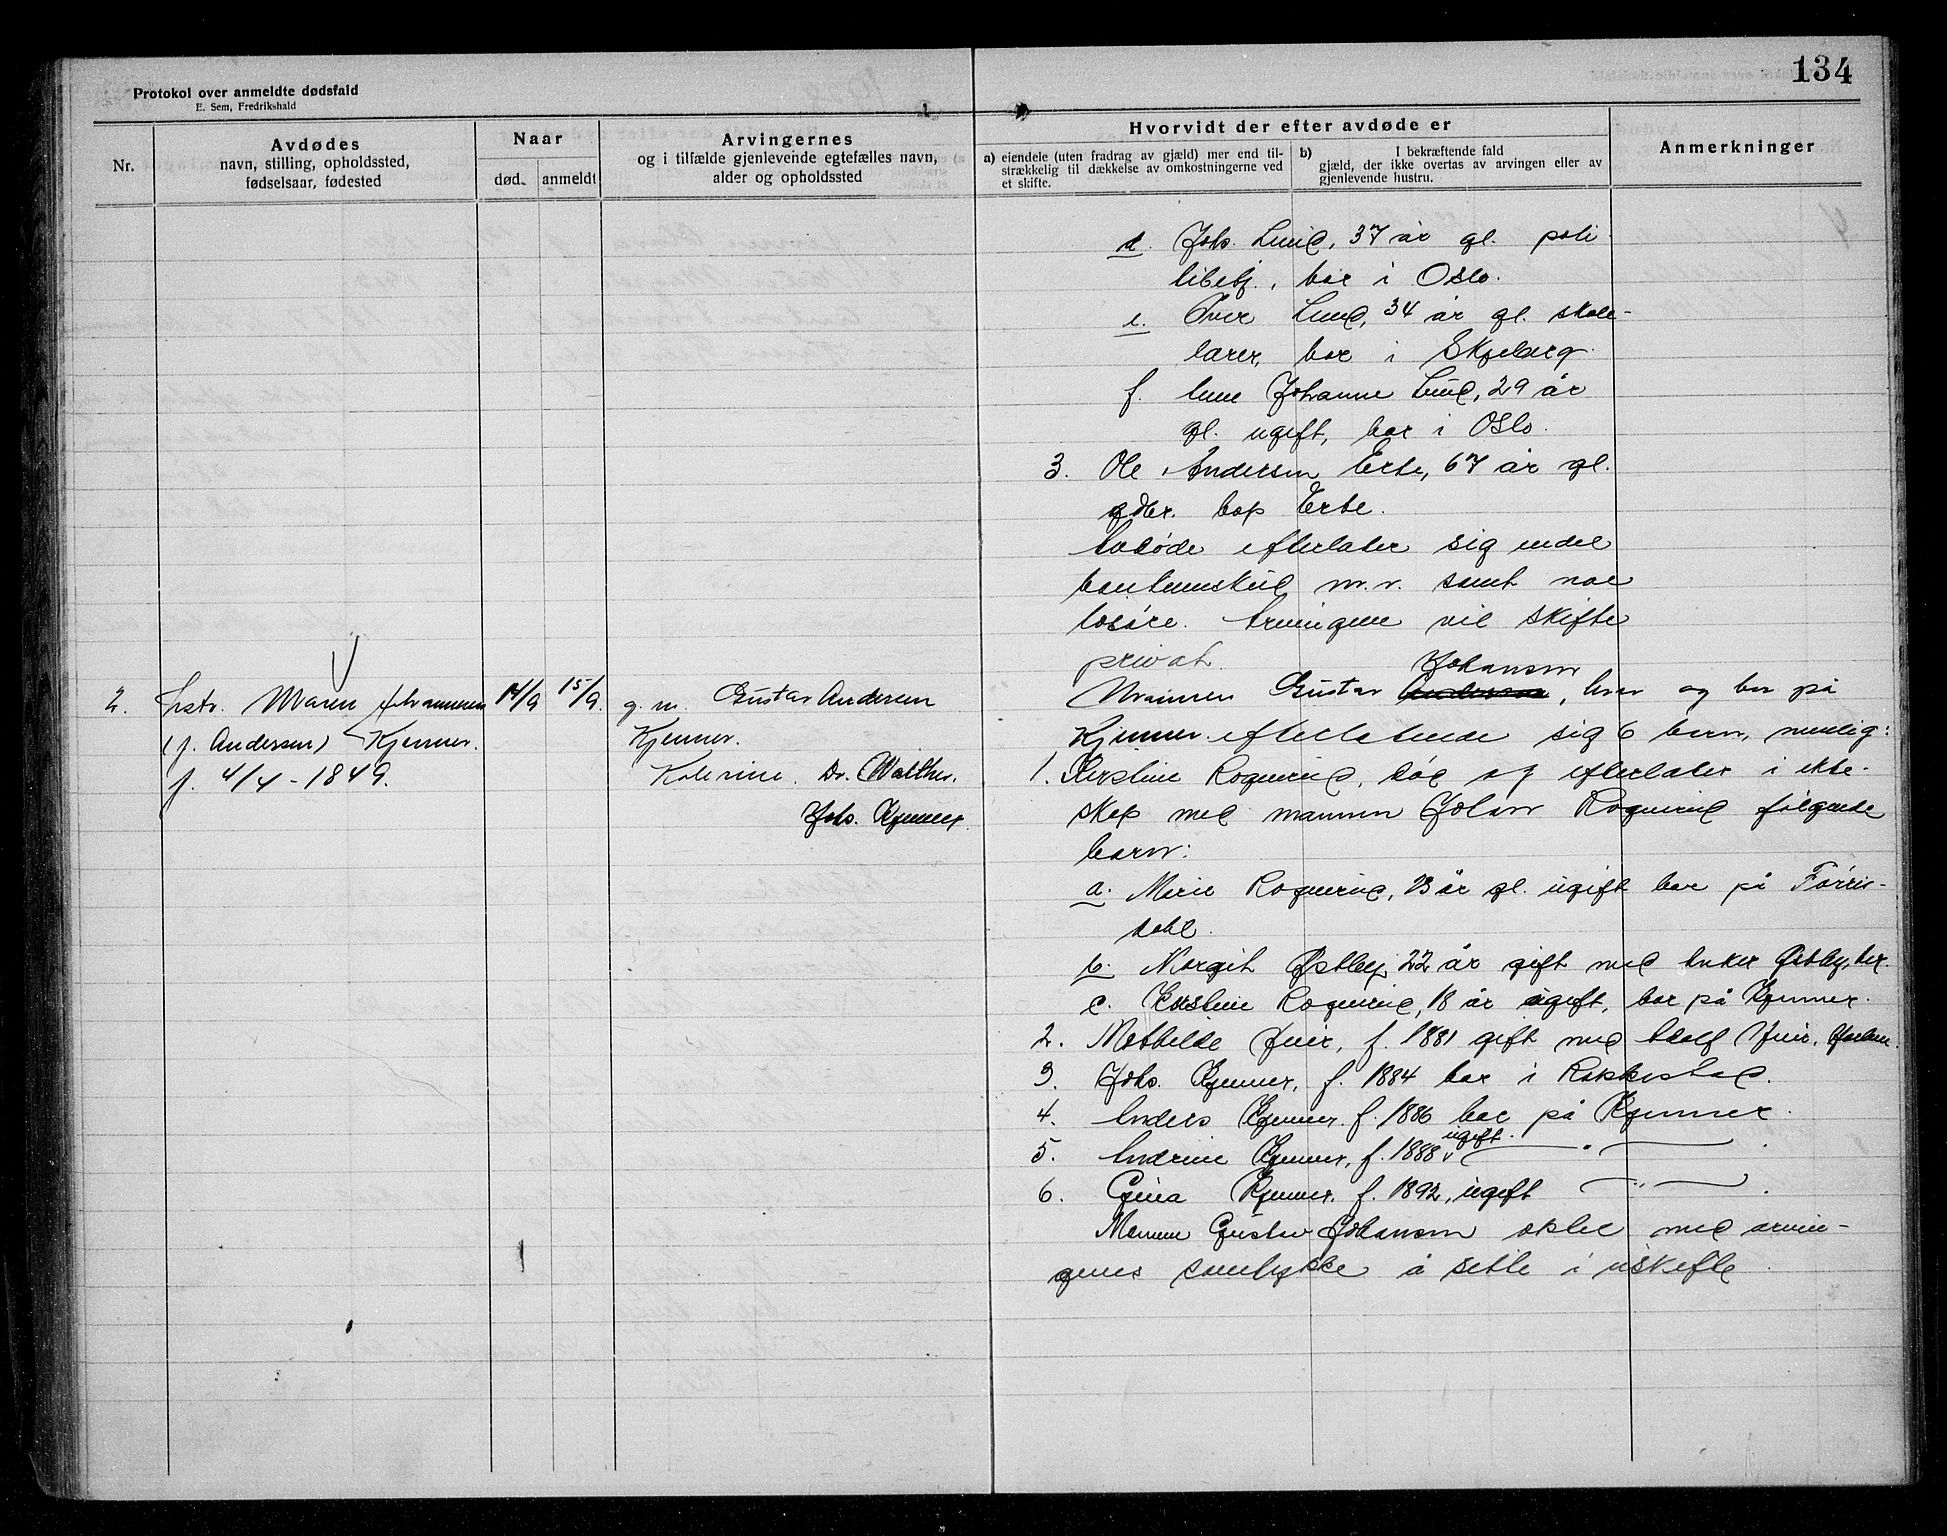 134
Protokol over anmeldte dødsfald
E. Sem, Fredrikshald
Nr.
Avdødes
navn, stilling, opholdssted,
fødselsaar, fødested
Naar
død.
anmeldt
Arvingernes
og i tilfælde gjenlevende egtefælles navn,
alder og opholdssted
Hvorvidt der efter avdøde er
a) eiendele (uten fradrag av gjæld) mer end til-
strækkelig til dækkelse av omkostningerne ved
et skifte.
b) I bekræftende fald
gjæld, der ikke overtas av arvingen eller av
gjenlevende hustru.
Anmerkninger
d. Johs. Lund, 37 år gl. poli
tibetj., bor i Oslo.
e. Iver Lund, 34 år gl. skole-
lærer, bor i Skjeberg.
f. Anne Johanne Lund, 29 år
gl. ugift, bor i Oslo.
3. Ole Andersen Erte, 67 år gl.
gdbr. bop Erte.
Avdøde efterlater sig endel
bankinnskud m.v. samt noe
løsøre. Arvingene vil skifte
privat.
2. Hustr. Maren Johannesen
(f. Andersen) Kjenner.
f. 4/4 - 1849.
14/9
15/9.
g. m. Gustav Andersen
Kjenner.
Katerine. Dr. Walther.
Johs. Kjenner.
Johansen
Mannen Gustav Andersen, lever og bor på
Kjenner efterlatende sig 6 barn, nemlig:
1. Kirstine Rognerud, død og efterlater i ekte-
skap med mannen Johan Rognerud følgende
barn:
a. Marie Rognerud, 23 år gl. ugift bor på
b. Margit Østby, 22 år gift med Østby,
c. Kirstine Rognerud, 18 år ugift, bor på Kjenner.
2. Mathilde f. 1881 gift med Adolf
3. Johs. Kjenner, f. 1884 bor i Rakkestad.
4. Anders Kjenner f. 1886 bor på Kjenner.
5. Andrine Kjenner, f. 1888, ugift. — " —
6. Gina Kjenner. f. 1892, ugift — " —
Mannen Gustav Johansen akter med arvin-
genes samtykke å sitte i uskifte.